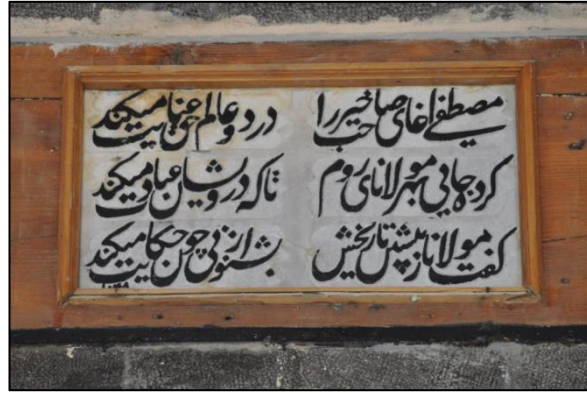 مصطفی آغای صاحب خیر را در دو عالم حق عنایت میکند
کرد جایی بهر مولانای روم تا که درویشان عبادت میکند
گفت مولانا تاریخش بشنو از نی چون حکایت میکند